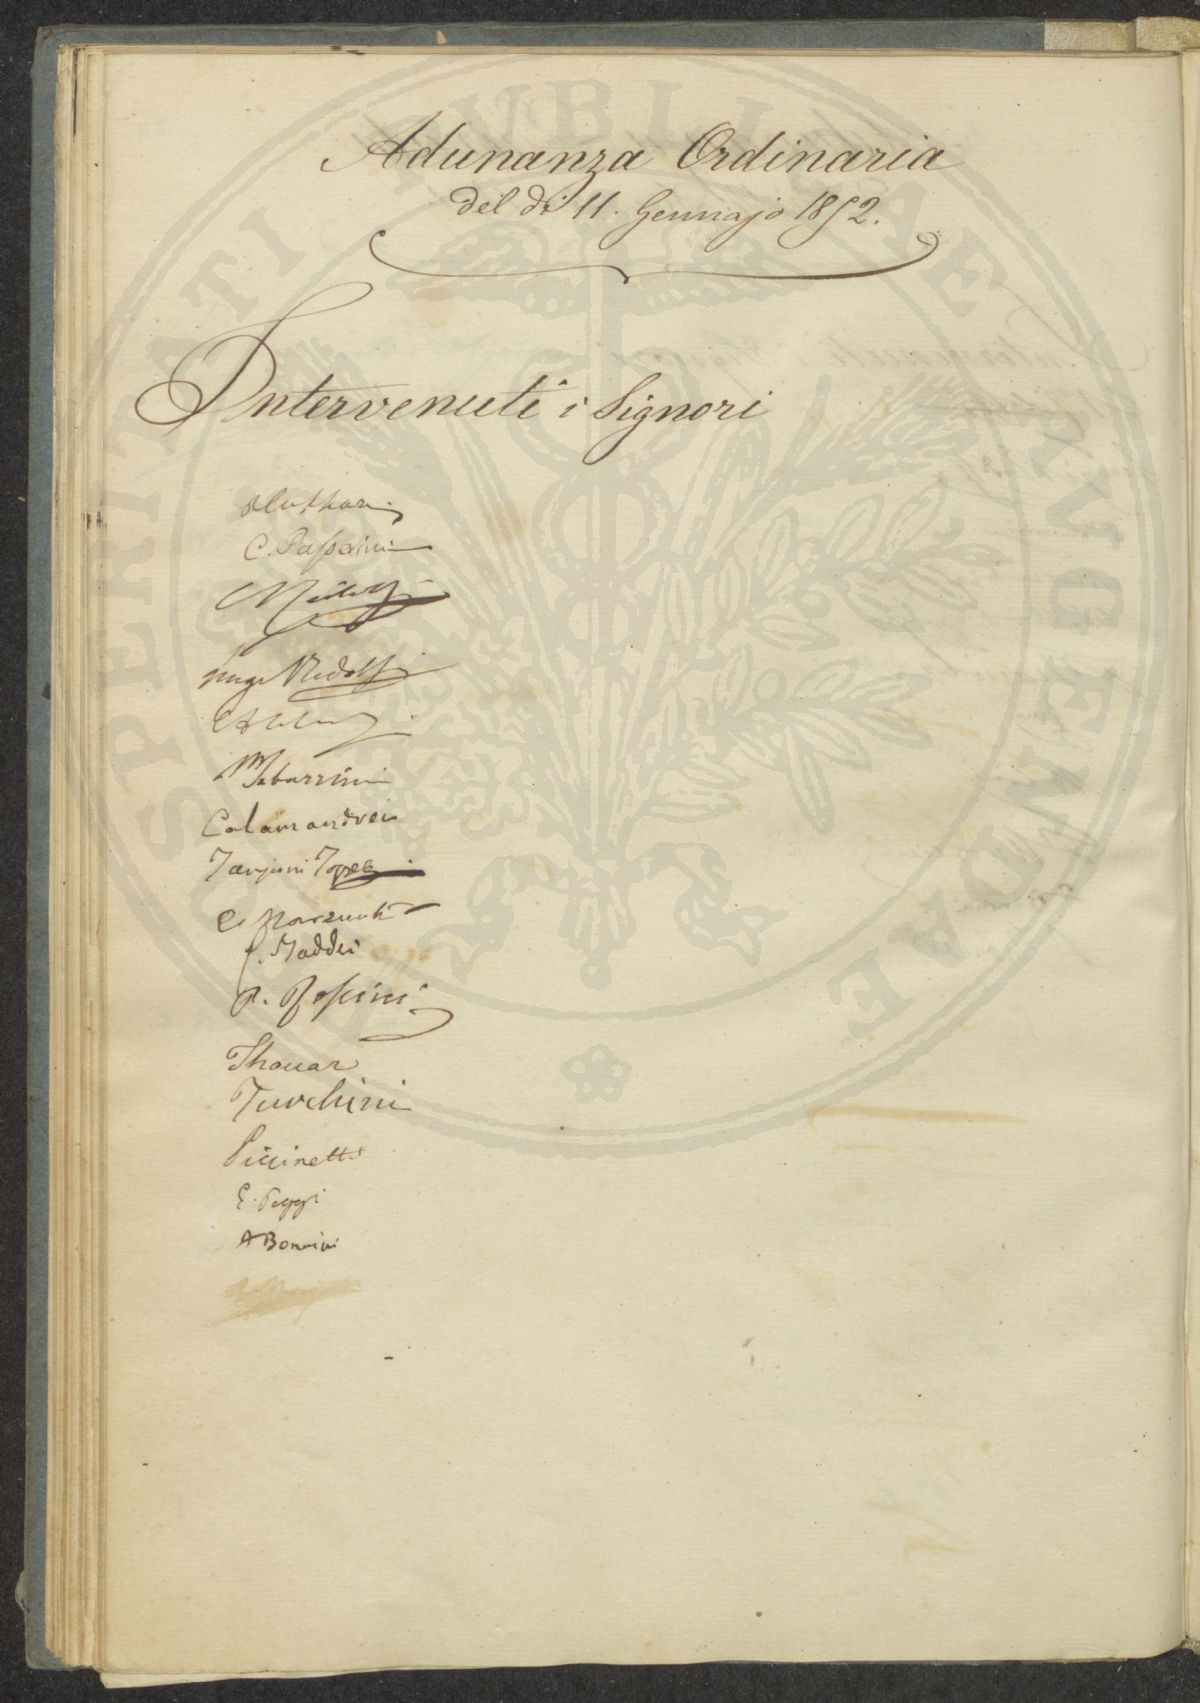 Adunanza Ordinaria
del dì 11. Gennajo 1852.
Intervenuti i Signori
C. Passerini
Luigi Ridolfi
M Tabarrini
Calamandrei
Targioni Tozzetti
f. Taddei
P. Rossini
Thouar
Turchini
Piccinetti
E. Poggi
A Bonnini
PROSPERITATI PVBLICAE AVGENDAE